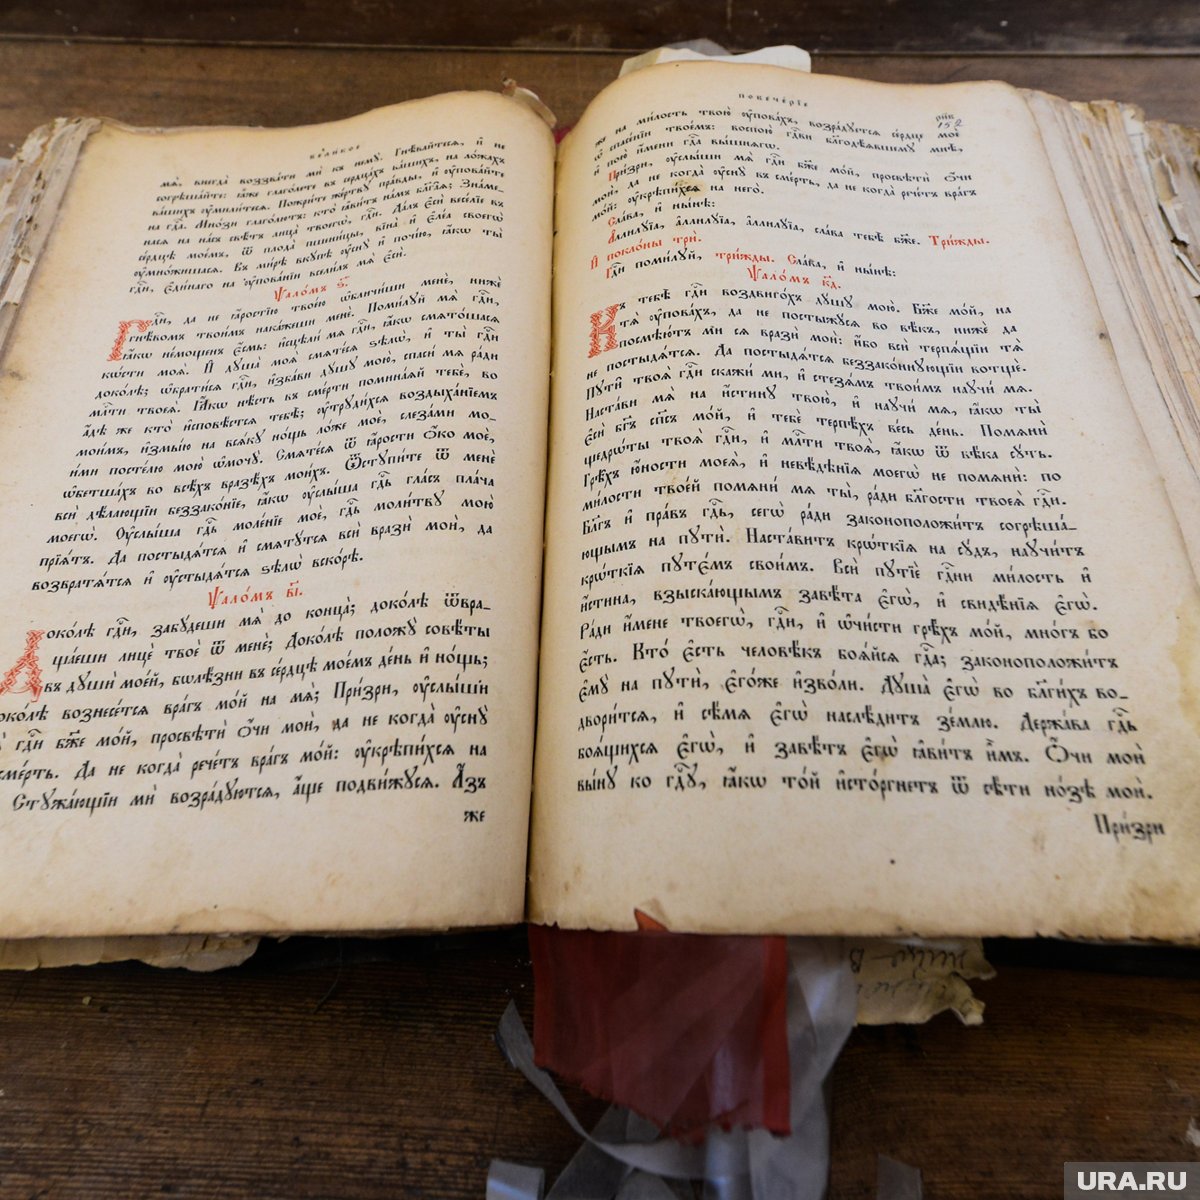 вели́кое
мѧ̀, внегда̀ воззва́ти мѝ къ немꙋ̀. Гнѣ́вайтесѧ, и҆ не
согрѣша́йте: ꙗ҆̀же глаго́лете въ сердца́хъ ва́шихъ, на ло́жахъ
ва́шихъ ᲂу҆мили́тесѧ. Пожри́те же́ртвꙋ пра́вды, и҆ ᲂу҆пова́йте
на гдⷭ҇а. Мно́зи глаго́лютъ: кто̀ ꙗ҆ви́тъ на́мъ бл҃га̑ѧ; Зна́ме-
насѧ на на́съ свѣ́тъ лица̀ твоегѡ̀, гдⷭ҇и. Да́лъ є҆сѝ весе́лїе въ
се́рдцѣ мое́мъ, ѿ плода̀ пшени́цы, вїна̀ и҆ є҆ле́а своегѡ̀
ᲂу҆мно́жишасѧ. Въ ми́рѣ вкꙋ́пѣ ᲂу҆снꙋ̀ и҆ почі́ю, ꙗ҆́кѡ ты̀
гдⷭ҇и, є҆ди́наго на ᲂу҆пова́нїи всели́лъ мѧ̀ є҆сѝ.
Ѱало́мъ ѕ҃.
Гдⷭ҇и, да не ꙗ҆́ростїю твое́ю ѡ҆бличи́ши менѐ, нижѐ
гнѣ́вомъ твои́мъ нака́жеши менѐ. Поми́лꙋй мѧ̀ гдⷭ҇и,
ꙗ҆́кѡ не́мощенъ є҆́смь: и҆сцѣли́ мѧ гдⷭ҇и, ꙗ҆́кѡ смѧто́шасѧ
кѡ́сти моѧ̑. И҆ дꙋша̀ моѧ̀ смѧте́сѧ ѕѣлѡ̀, и҆ ты̀ гдⷭ҇и
доко́лѣ; ѡ҆брати́сѧ гдⷭ҇и, и҆зба́ви дꙋ́шꙋ мою̀, спаси́ мѧ ра́ди
мл҃ти твоеѧ̀. Ꙗ҆́кѡ нѣ́сть въ сме́рти помина́ѧй тебѐ, во
а҆́дѣ же кто̀ и҆сповѣ́стсѧ тебѣ̀; ᲂу҆трꙋди́хсѧ воздыха́нїемъ
мои́мъ, и҆змы́ю на всѧ́кꙋ но́щь ло́же моѐ, слеза́ми мо-
и́ми посте́лю мою̀ ѡ҆мочꙋ̀. Смѧте́сѧ ѿ ꙗ҆́рости ѻ҆́ко моѐ,
ѡ҆бетша́хъ во всѣ́хъ вразѣ́хъ мои́хъ. Ѿстꙋпи́те ѿ менѐ
всѝ дѣ́лающїи беззако́нїе, ꙗ҆́кѡ ᲂу҆слы́ша гдⷭ҇ь гла́съ пла́ча
моегѡ̀. ᲂу҆слы́ша гдⷭ҇ь моле́нїе моѐ, гдⷭ҇ь моли́твꙋ мою̀
прїѧ́тъ. Да постыдѧ́тсѧ и҆ смѧтꙋ́тсѧ всѝ вразѝ моѝ, да
возвратѧ́тсѧ и҆ ᲂу҆стыдѧ́тсѧ ѕѣлѡ̀ вско́рѣ.
Ѱало́мъ в҃і.
Доко́лѣ гдⷭ҇и, забꙋ́деши мѧ̀ до конца̀; доко́лѣ ѿвра-
ща́еши лицѐ твоѐ ѿ менѐ; Доко́лѣ положꙋ̀ совѣ́ты
въ дꙋшѝ мое́й, бѡлѣ́зни въ се́рдцѣ мое́мъ де́нь и҆ но́щь;
доко́лѣ вознесе́тсѧ вра́гъ мо́й на мѧ̀; При́зри, ᲂу҆слы́ши
мѧ̀ гдⷭ҇и бж҃е мо́й, просвѣтѝ ѻ҆́чи моѝ, да не когда̀ ᲂу҆снꙋ̀
въ сме́рть. Да не когда̀ рече́тъ вра́гъ мо́й: ᲂу҆крѣпи́хсѧ на
Стꙋжа́ющїи мѝ возра́дꙋютсѧ, а҆́ще подви́жꙋсѧ. А҆́зъ
же
повече́рїе
рн҃в
152
же на ми́лость твою̀ ᲂу҆пова́хъ, возра́дꙋетсѧ се́рдце моѐ
ѡ҆ спасе́нїи твое́мъ: воспою̀ гдⷭ҇ви бл҃годѣ́ѧвшемꙋ мнѣ̀,
и҆ пою̀ и҆́мени гдⷭ҇а вы́шнѧгѡ.
При́зри, ᲂу҆слы́ши мѧ̀ гдⷭ҇и бж҃е мо́й, просвѣтѝ ѻ҆́чи
моѝ, да не когда̀ ᲂу҆снꙋ̀ въ сме́рть, да не когда̀ рече́тъ вра́гъ
мо́й: ᲂу҆крѣпи́хсѧ на него̀.
Сла́ва, и҆ ны́нѣ:
А҆ллилꙋ́їа, а҆ллилꙋ́їа, а҆ллилꙋ́їа, сла́ва тебѣ̀ бж҃е. Три́жды.
И҆ покло́ны трѝ.
Гдⷭ҇и поми́лꙋй, три́жды. Сла́ва, и҆ ны́нѣ:
Ѱало́мъ к҃д.
Къ тебѣ̀ гдⷭ҇и воздвиго́хъ дꙋ́шꙋ мою̀. Бж҃е мо́й, на
тѧ̀ ᲂу҆пова́хъ, да не постыжꙋ́сѧ во вѣ́къ, нижѐ да
посмѣю́тъ мѝ сѧ вразѝ моѝ: и҆́бо всѝ терпѧ́щїи тѧ̀
не постыдѧ́тсѧ. Да постыдѧ́тсѧ беззако́ннꙋющїи вотщѐ.
Пꙋти̑ твоѧ̑ гдⷭ҇и скажи́ ми, и҆ стезѧ́мъ твои́мъ наꙋчи́ мѧ.
Наста́ви мѧ̀ на и҆́стинꙋ твою̀, и҆ наꙋчи́ мѧ, ꙗ҆́кѡ ты̀
є҆сѝ бг҃ъ сп҃съ мо́й, и҆ тебѐ терпѣ́хъ ве́сь де́нь. Помѧнѝ
щедрѡ́ты твоѧ̑ гдⷭ҇и, и҆ мл҃ти твоѧ̑, ꙗ҆́кѡ ѿ вѣ́ка сꙋ́ть.
Грѣ́хъ ю҆́ности моеѧ̀, и҆ невѣ́дѣнїѧ моегѡ̀ не помѧнѝ: по
ми́лости твое́й помѧни́ мѧ ты̀, ра́ди бл҃гости твоеѧ̀ гдⷭ҇и.
Бл҃гъ и҆ пра́въ гдⷭ҇ь, сегѡ̀ ра́ди законоположи́тъ согрѣша́-
ющымъ на пꙋтѝ. Наста́витъ крѡ́ткїѧ на сꙋ́дъ, наꙋчи́тъ
крѡ́ткїѧ пꙋте́мъ свои́мъ. Всѝ пꙋтїѐ гдⷭ҇ни ми́лость и҆
и҆́стина, взыска́ющымъ завѣ́та є҆гѡ̀, и҆ свидѣ̑нїѧ є҆гѡ̀.
Ра́ди и҆́мене твоегѡ̀, гдⷭ҇и, и҆ ѡ҆чи́сти грѣ́хъ мо́й, мно́гъ бо
є҆́сть. Кто̀ є҆́сть человѣ́къ боѧ́йсѧ гдⷭ҇а; законоположи́тъ
є҆мꙋ̀ на пꙋтѝ, є҆го́же и҆зво́ли. Дꙋша̀ є҆гѡ̀ во бл҃ги́хъ во-
двори́тсѧ, и҆ сѣ́мѧ є҆гѡ̀ наслѣ́дитъ зе́млю. Держа́ва гдⷭ҇ь
боѧ́щихсѧ є҆гѡ̀, и҆ завѣ́тъ є҆гѡ̀ ꙗ҆ви́тъ и҆̀мъ. Ѻ҆́чи моѝ
вы́нꙋ ко гдⷭ҇ꙋ, ꙗ҆́кѡ то́й и҆сто́ргнетъ ѿ сѣ́ти но́зѣ моѝ.
При́зри
URA.RU